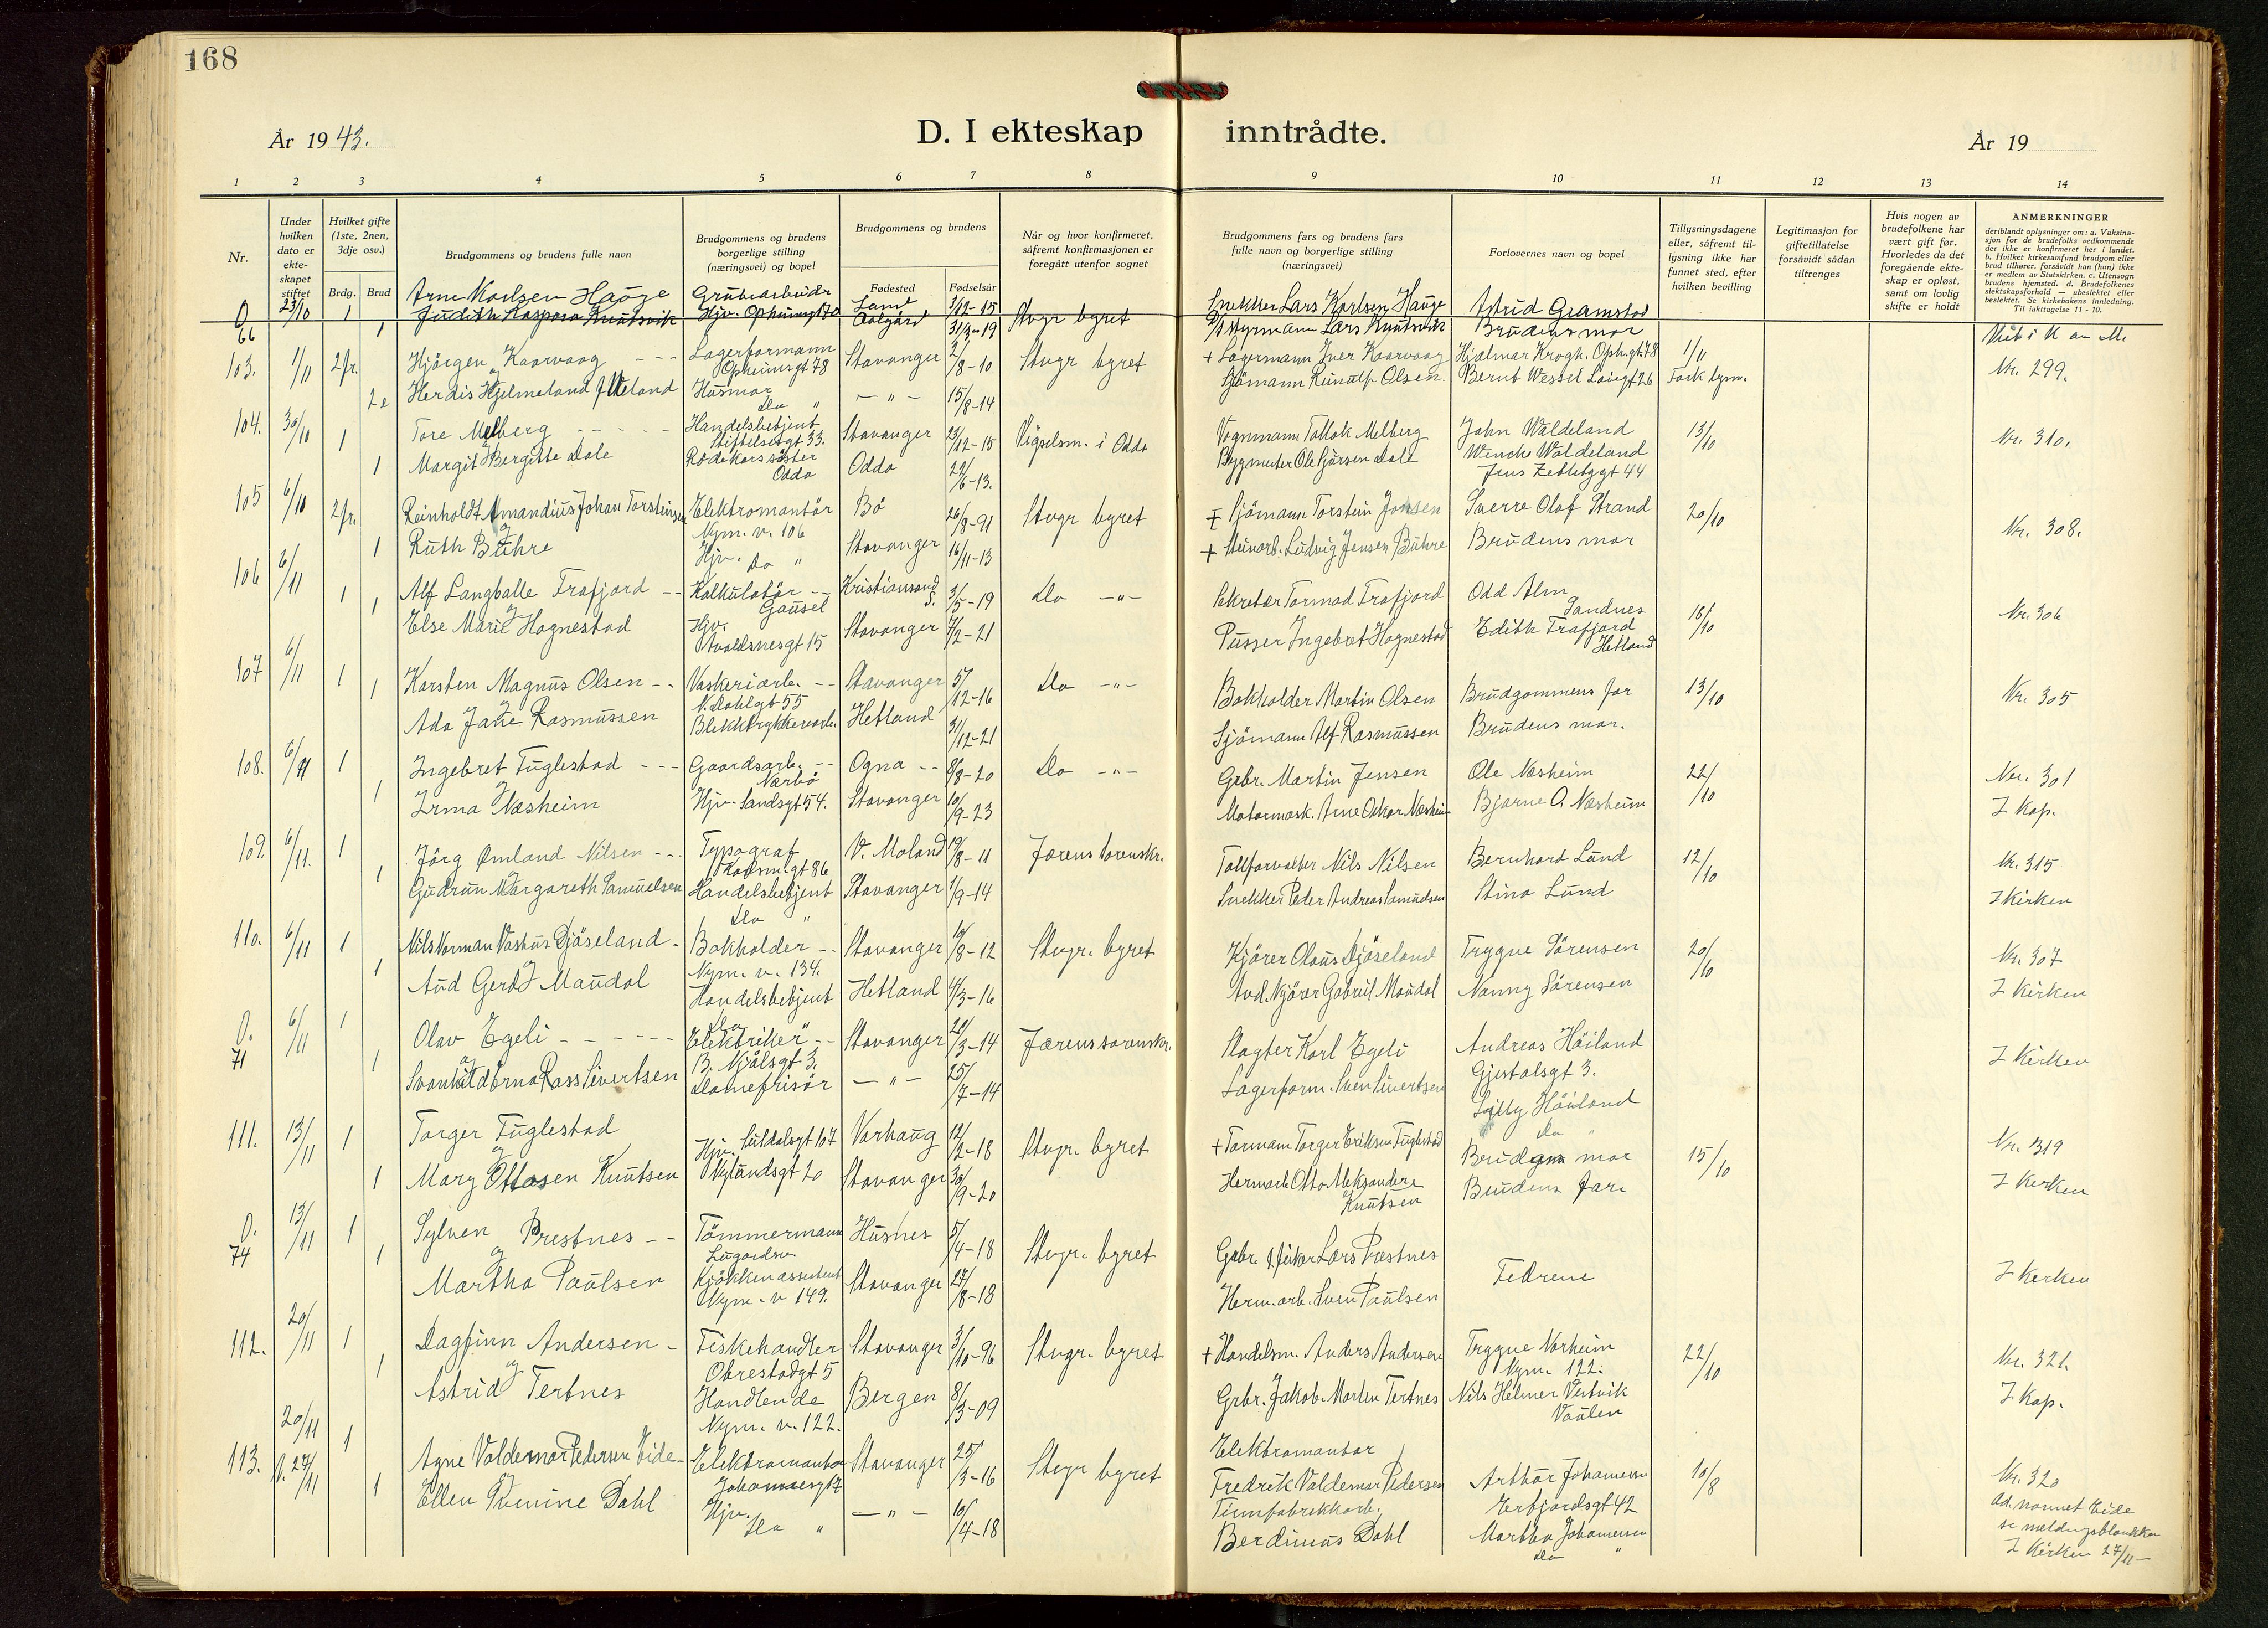 168
År 1943.
D. I ekteskap inntrådte.
År 19
1 2 3 4 5 6 7 8 9 10 11 12 13 14
Nr.
Under hvilken dato er ekteskapet stiftet
Hvilket gifte (1ste, 2nen, 3dje osv.)
Brdg. Brud
Brudgommens og brudens fulle navn
Brudgommens og brudens borgerlige stilling (næringsvei) og bopel
Brudgommens og brudens
Fødested
Fødselsår
Når og hvor konfirmeret, såfremt konfirmasjonen er foregått utenfor sognet
Brudgommens fars og brudens fars fulle navn og borgerlige stilling (næringsvei)
Forlovernes navn og bopel
Tillysningsdagene eller, såfremt tillysning ikke har funnet sted, efter hvilken bevilling
Legitimasjon for giftetillatelse forsåvidt sådan tiltrenges
Hvis nogen av brudefolkene har vært gift før. Hvorledes da det foregående ekteskap er opløst, samt om lovlig skifte er holdt
ANMERKNINGER
deriblandt oplysninger om: a. Vaksinasjon for de brudefolks vedkommende der ikke er konfirmeret her i landet. b. Hvilket kirkesamfund brudgom eller brud tilhører, forsåvidt han (hun) ikke er medlem av Statskirken. c. Utensogn brudens hjemsted. d. Brudefolkenes slektskapsforhold — ubeslektet eller beslektet. Se kirkebokens innledning. Til iakttagelse 11 - 10.
O 66 23/10 1 Arne Karlsen Hauge Grubearbeider 3/12-15 Snekker Lars Karlsen Hauge Astrid Gramstad
1 Judith Kaspara Knutsvik Hjv. Aalgård 31/3-19 Stvgr byret Myrmann Lars Knutsvik Brudens mor
103. 1/11 2fr. Hjørgen Kaarvaag Lagerformann Opheimsgt 78 Stavanger 2/8-10 Stvgr byret + Lagermann Iver Kaarvaag Hjalmar Krogh. Oph.gt. 78 1/11 Nr. 299.
2e Herdis Hjelmeland Husmor Do " — " — 15/8-14 Olsen. Bernt Wessel
104. 30/10 1 Tore Melberg Handelsbetjent Stiftelsesgt 33. Stavanger 23/12-15 Vigselsm. i Odda Vognmann Tollak Melberg John Waldeland 13/10 Nr. 310.
1 Margit Bergitte Dale Rødekorssøster Odda Odda 22/6-13. Byggmester Ole Dale Wenche Waldeland Jens Zetlitzgt 44
105 6/11 2fr. Reinholdt Amandius Johan Torstensen Elektromontør Nym. v. 106 Bø 26/8-91 Stvgr byret + Sjømann Torstein Jonsen Sverre Olaf Strand 20/10 Nr. 308.
1 Ruth Bühre Hjv. Do " Stavanger 16/11-13 + Steinarb. Ludvig Jensen Bühre Brudens mor
106 6/11 1 Alf Langballe Frafjord Kalkulatør Gausel Kristiansand S. 3/5-19 Do — " — Sekretær Tormod Frafjord Odd Alm Sandnes 18/10 Nr. 306
1 Else Marie Hognestad Hjv. Avaldsnesgt 15 Stavanger 7/2-21 Pusser Ingebret Hognestad Edith Frafjord Hetland
107 6/11 1 Karsten Magnus Olsen Vaskeriarb. V. Dahlsgt 55 Stavanger 5/12-16 Do — " — Bokholder Martin Olsen Brudgommens far 13/10 Nr. 305
1 Ada Jane Rasmussen Blekktrykkerarb. Hetland 31/12-21 Sjømann Alf Rasmussen Brudens mor.
108. 6/11 1 Ingebret Fuglestad Gaardsarb. Nærbø Ogna 8/8-20 Do — " — Grbr. Martin Jensen Ole Næsheim 22/10 Nr. 301
1 Irma Næsheim Hjv. Sandsgt 54. Stavanger 10/9-23 Motormask. Arne Oskar Næsheim Bjarne O. Næsheim I Kap.
109. 6/11. 1 Jörg Omland Nilsen Typograf Karlsm.gt 86 V. Moland 19/8-11 Jærens sorenskr. Tollforvalter Nils Nilsen Bernhard Lund 12/10 Nr. 315
1 Gudrun Margareth Samuelsen Handelsbetjent Do " Stavanger 1/9-14 Snekker Peder Andreas Samuelsen Stina Lund I Kirken
110. 6/11 1 Nils Norman Vashus Djøseland Bokholder Nym. v. 134. Stavanger 19/8-12 Stvgr. byret Kjører Olaus Djøseland Trygve Sørensen 20/10 Nr. 307
1 Aud Gerd Maudal Handelsbetjent Do Hetland 4/3-16 Avd. Kjører Gabriel Maudal Nanny Sørensen I Kirken
O. 71 6/11 1 Olav Egeli Elektriker B. Njålsgt 3. Stavanger 21/3-14 Jærens sorenskr. Slagter Karl Egeli Andreas Høiland Gjestalsgt 3. I Kirken
1 Svanhild Erna Rass Sivertsen Damefrisør — " — 25/7-14 Lagerform. Sven Sivertsen Lilly Høiland Do "
111. 13/11 1 Torger Fuglestad Suldalsgt 107 Varhaug 12/2-18 Stvgr. byret + Formann Torger Eriksen Fuglestad Brudgm mor 15/10 Nr. 319
1 Mary Ottosen Knutsen Hjv. Nylundsgt 20 Stavanger 30/9-20 Hermarb Otto Aleksander Knutsen Brudens far. I Kirken
O. 74 13/11 1 Sylven Prestnes Tømmermann Lagårdsv. Husnes 5/4-18 Stvgr. byret Gbr. & fisker Lars Prestnes Fedrene I Kirken
1 Martha Paulsen Kjøkkenassistent Nym. v 149. Stavanger 27/8-18 Herm.arb. Sven Paulsen
112. 20/11 1 Dagfinn Andersen Fiskehandler Obrestadgt 5 Stavanger 3/10-96 Stvgr. byret + Handelsm. Anders Andersen Trygve Varheim Nym. 122. 22/10 Nr. 321.
1 Astrid Tertnes Handlende Nym. v. 122. Bergen 8/3-09 Grbr. Jakob Morten Tertnes Nils Helmer Vestvik Vaulen I Kap.
113. 20/11 27/11 1 Agne Valdemar Pedersen Eide Elektromontør Stavanger 25/3-16 Stvgr byret Elektromontør Fredrik Valdemar Pedersen Arthur Johannessen Erfjordsgt 42 10/8 Nr. 320
1 Ellen Dahl Hjv. Do " — " — 10/4-18 Tinnfabrikkarb. Berdinus Dahl Martha Johannessen Do " Ad. navnet Eide se I Kirken 27/11 —